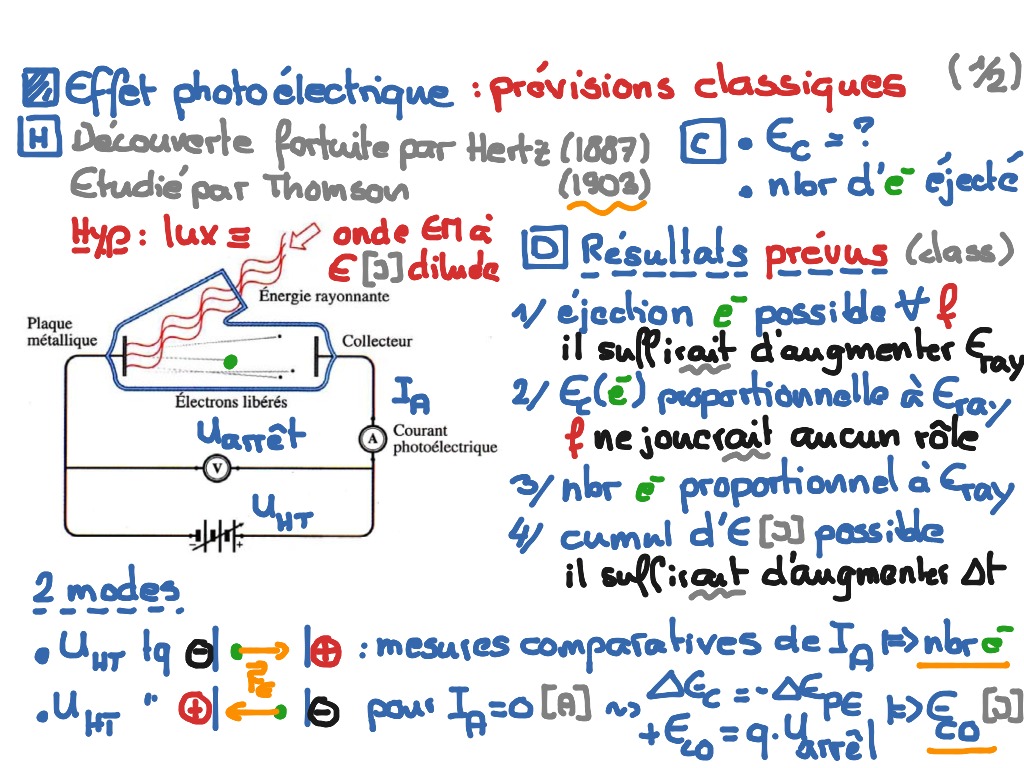 Effet photoélectrique : prévisions classiques (1/2)
H Découverte fortuite par Hertz (1887)
Etudié par Thomson (1903)
C • Ec = ?
• nbr d'e⁻ éjecté
Hyp : lux ≡ onde EM à
E [J] diluée
Énergie rayonnante
Plaque
métallique
Collecteur
Électrons libérés
I_A
A
Courant
photoélectrique
U arrêt
V
U_HT
D Résultats prévus (class)
1/ éjection e⁻ possible ∀ f
il suffirait d'augmenter E_ray
2/ Ec(e⁻) proportionnelle à E_ray
f ne jouerait aucun rôle
3/ nbr e⁻ proportionnel à E_ray
4/ cumul d'E [J] possible
il suffirait d'augmenter Δt
2 modes
• U_HT tq ⊖| |⊕ : mesures comparatives de I_A |=> nbr e⁻
F_e
• U_HT " ⊕| |⊖ pour I_A = 0 [A] ~> ΔEc = -ΔE_PE |=> E_c0 [J]
+E_c0 = q.U_arrêt